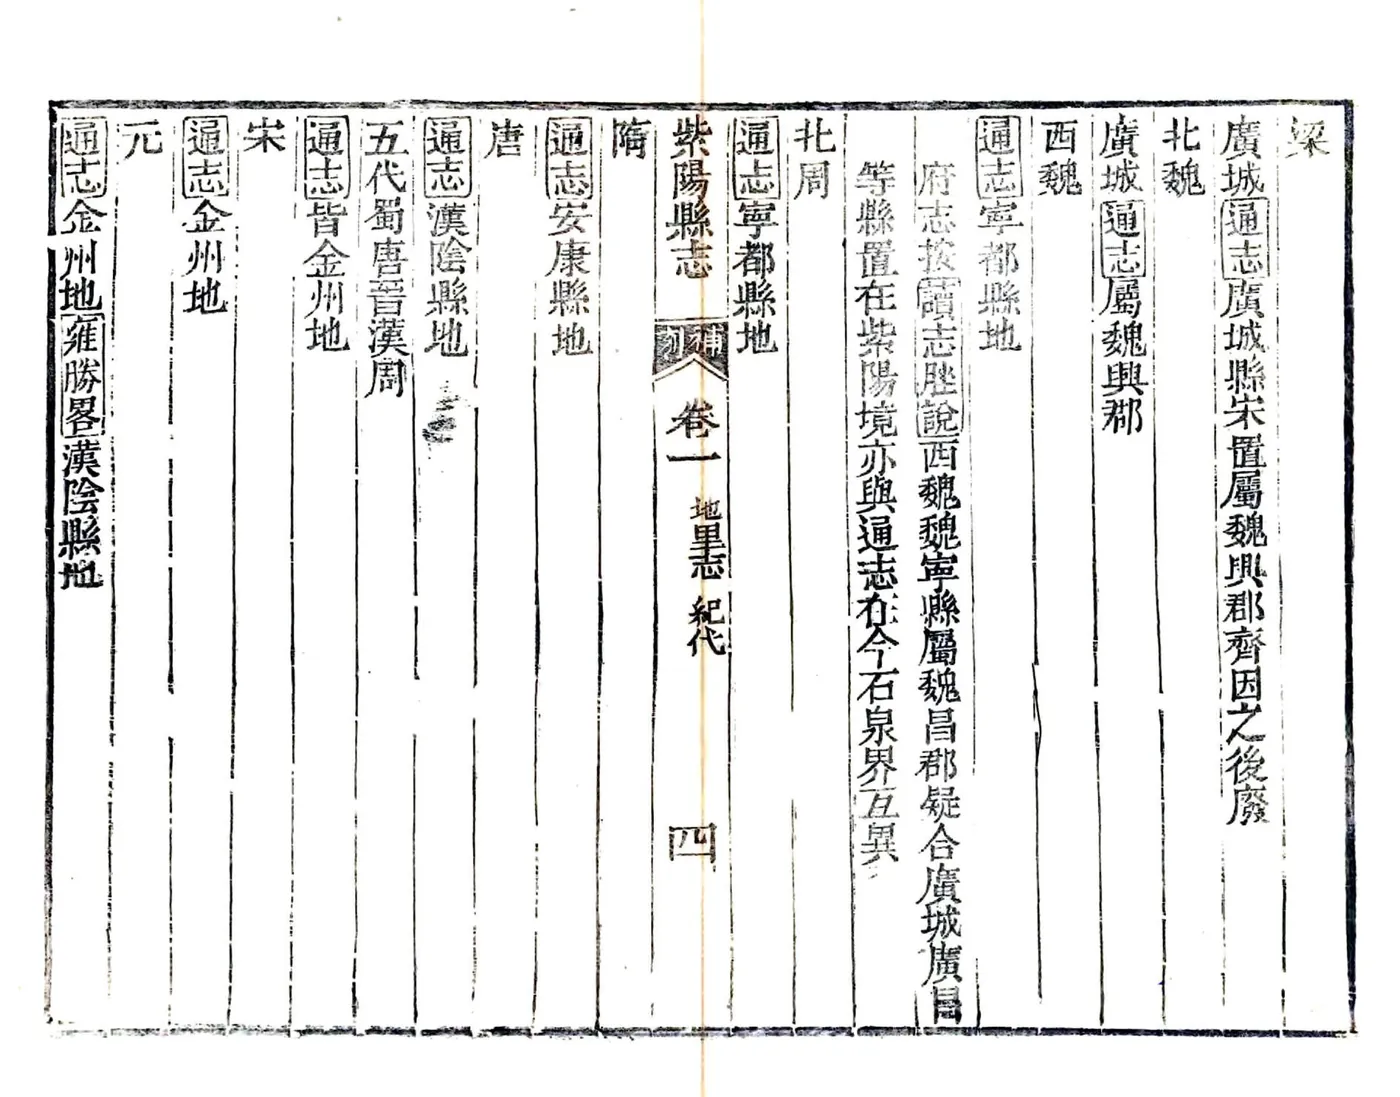 梁
廣城通志廣城縣宋置屬魏興郡齊因之後廢
北魏
廣城通志屬魏興郡
西魏
通志寧都縣地
府志按讀志脞說西魏魏寧縣屬魏昌郡疑合廣城廣昌
等縣置在紫陽境亦與通志在今石泉界互異
北周
通志寧都縣地
紫陽縣志 補刻 卷一 地里志 紀代 四
隋
通志安康縣地
唐
通志漢陰縣地
五代蜀唐晉漢周
通志皆金州地
宋
通志金州地
元
通志金州地雍勝畧漢陰縣地